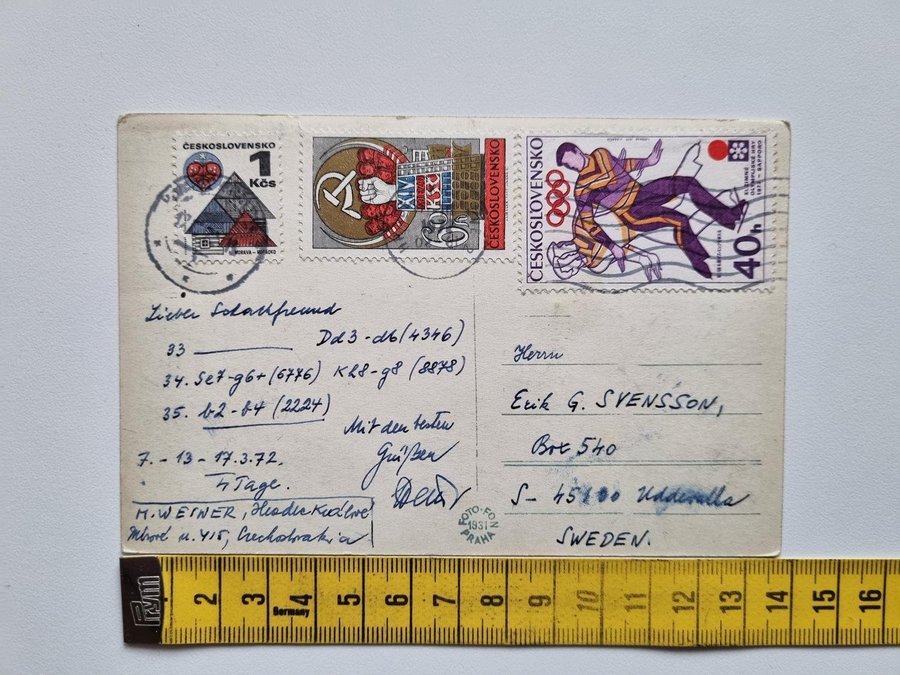 ČESKOSLOVENSKO
1
Kčs
MORAVA - HORÁCKO
ČESKOSLOVENSKO
XIV
KSČ
60h
ČESKOSLOVENSKO
40h
XI. ZIMNÉ
OLYMPIJSKÉ HRY
1972 - SAPPORO
Lieber Schachfreund
33 Dd3-d6 (4346)
34. Se7-g6+ (5776) Kh8-g8 (8878)
35. b2-b4 (2224)
Mit den besten
Grüßen
7. - 13 - 17.3.72.
4 Tage.
M. WESNER, Hradec Králové
Mírové n. 415, Czechoslovakia
FOTO-FON
1931
PRAHA
Herrn
Erik G. SVENSSON,
Box 540
S- 45100 Uddevalla
SWEDEN.
Prym
2 3 4 5 6 7 8 9 10 11 12 13 14 15 16
Germany